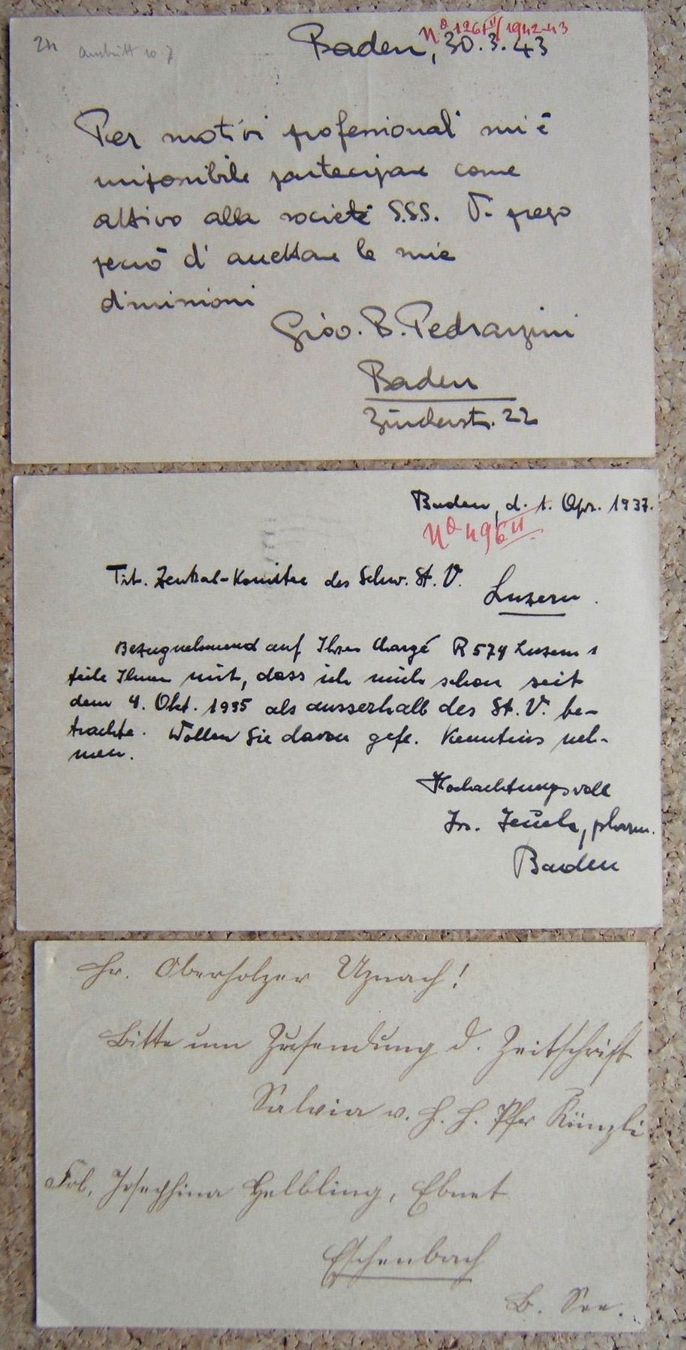 24 Austritt
Baden, 30.3.43
No 126 II/1942-43
Per motivi professionali mi è
impossibile partecipare come
attivo alla società S.S.S. Vi prego
perciò d'accettare le mie
dimissioni
Giov. B. Pedrazzini
Baden
Zürcherstr. 22
Baden, d. 1. Apr. 1937.
No 496 II
Tit. Zentral-Komitee des Schw. St. V.
Luzern.
Bezugnehmend auf Ihren Chargé R 574 Luzern 1
teile Ihnen mit, dass ich mich schon seit
dem 4. Okt. 1935 als ausserhalb des St. V. be-
trachte. Wollen Sie davon gefl. Kenntnis neh-
men.
Hochachtungsvoll
Jos. pharm.
Baden
Hr. Oberholzer Uznach!
Bitte um Zusendung d. Zeitschrift
Salvia v. H. H. Pfr Künzli
Frl. Josephina Helbling, Ebnet
Eschenbach
B. See.